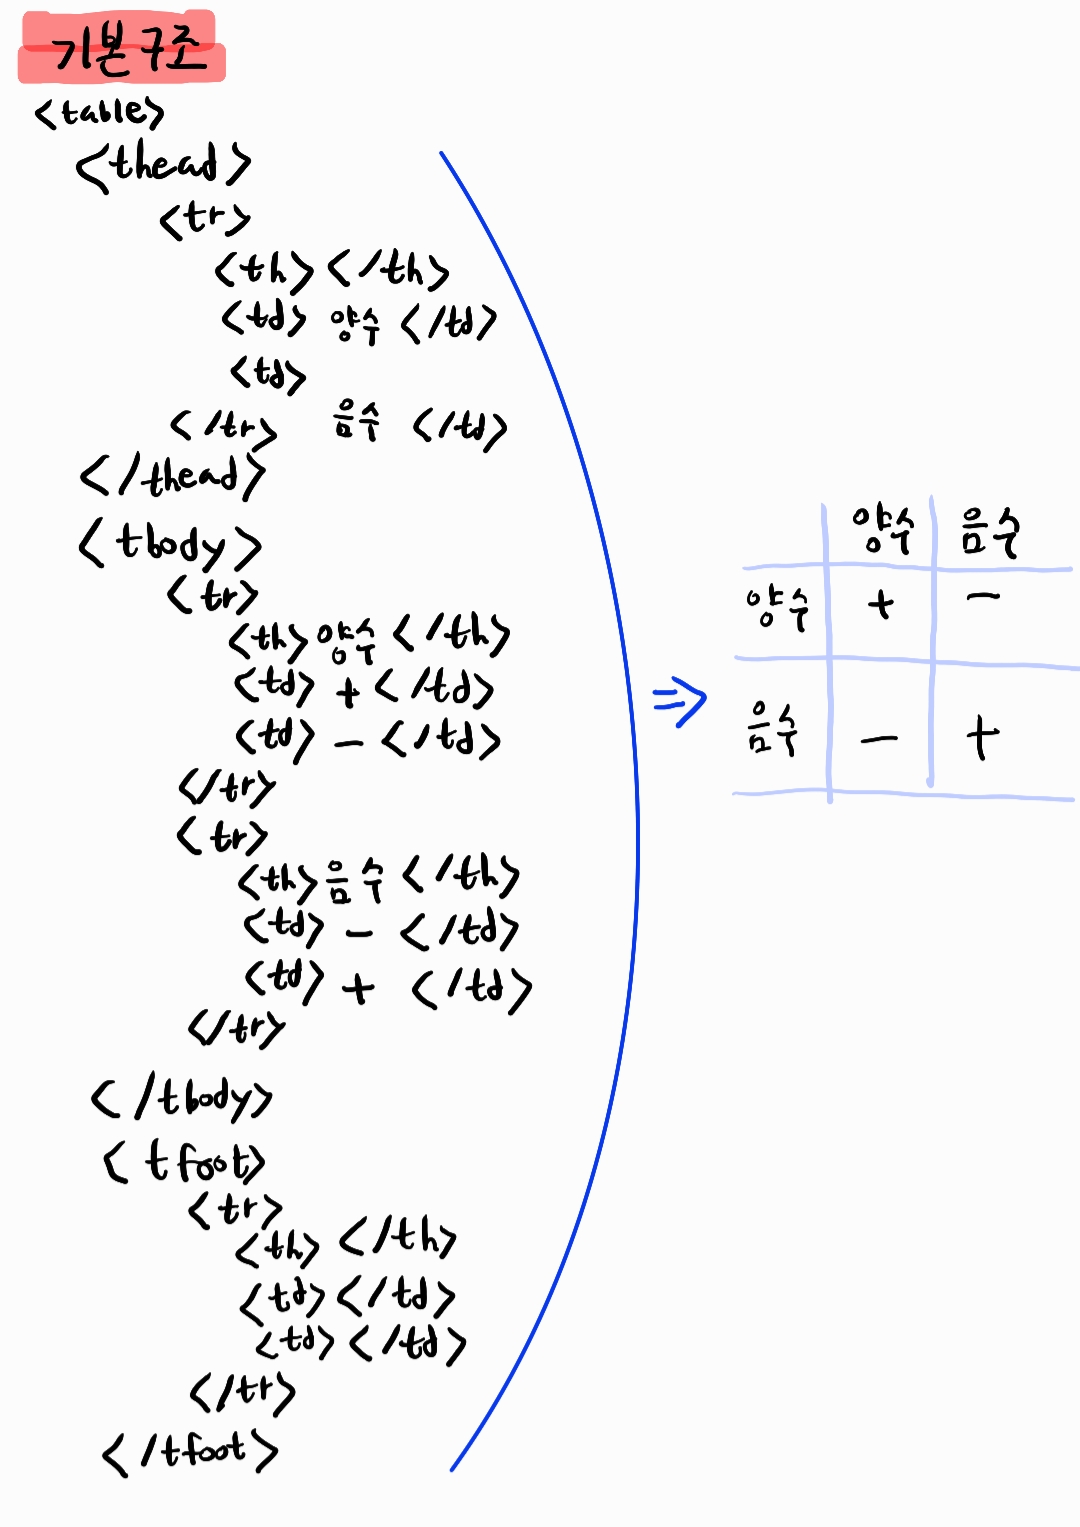 기본구조
<table>
<thead>
<tr>
<th> </th>
<td> 양수 </td>
<td>
음수 </td>
</tr>
</thead>
<tbody>
<tr>
<th> 양수 </th>
<td> + </td>
<td> - </td>
</tr>
<tr>
<th> 음수 </th>
<td> - </td>
<td> + </td>
</tr>
</tbody>
<tfoot>
<tr>
<th> </th>
<td> </td>
<td> </td>
</tr>
</tfoot>
⇒
양수 음수
양수 + -
음수 - +